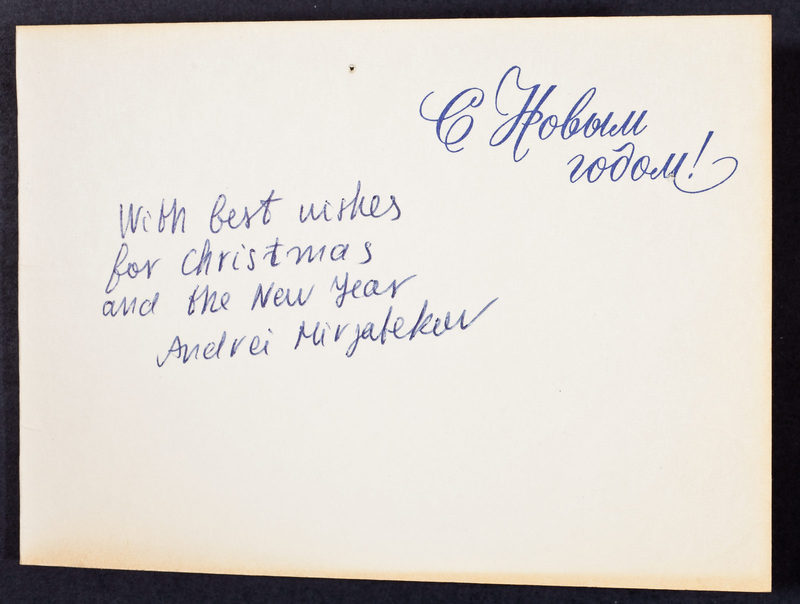 С Новым
годом!
With best wishes
for Christmas
and the New Year
Andrei